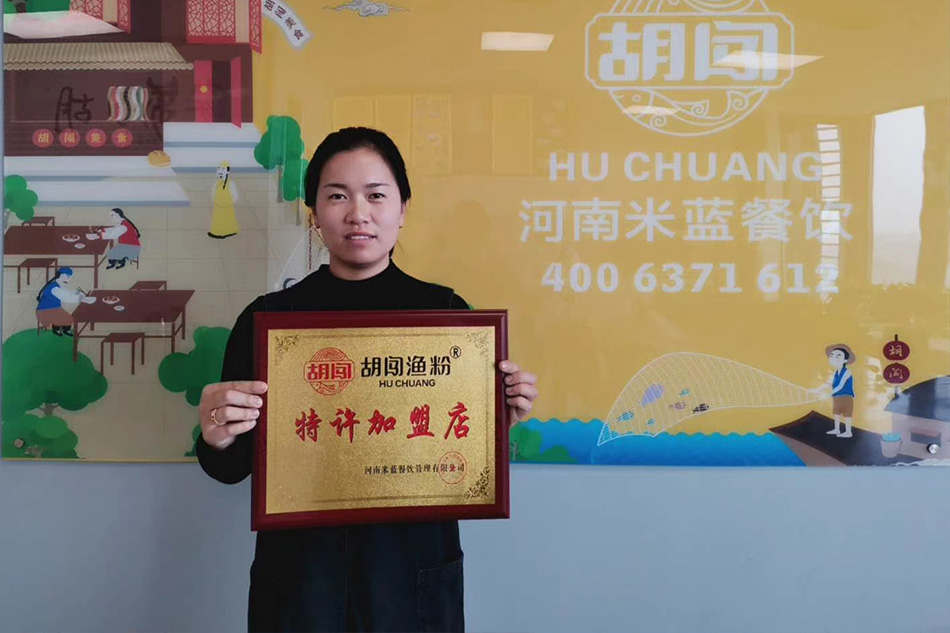 胡闯美食
胡闯美食
胡闯
HU CHUANG
河南米蓝餐饮
400 6371 612
胡闯
胡闯渔粉®
HU CHUANG
特许加盟店
河南米蓝餐饮管理有限公司
胡闯